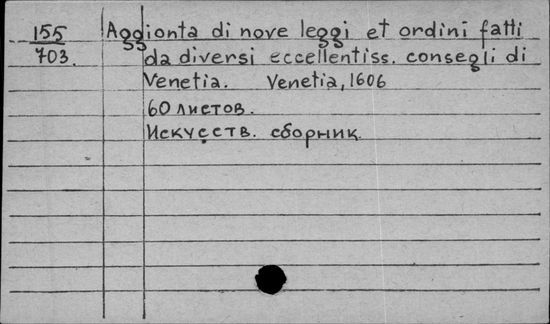 155 Aggionta di nove leggi et ordini fatti
703. da diversi eccellentiss. consegli di
Venetia. Venetia, 1606
60 листов.
Искусств. сборник